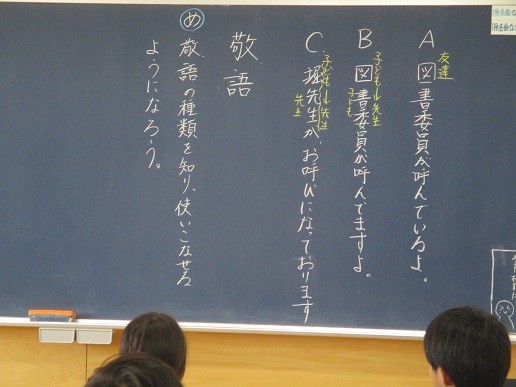 友達
A 図書委員が呼んでいるよ。
子ども→先生
B 図書委員が呼んでますよ。
子ども
子ども→先生
C. 堀先生が、お呼びになっております
先生
敬語
め 敬語の種類を知り、使いこなせる
ようになろう。